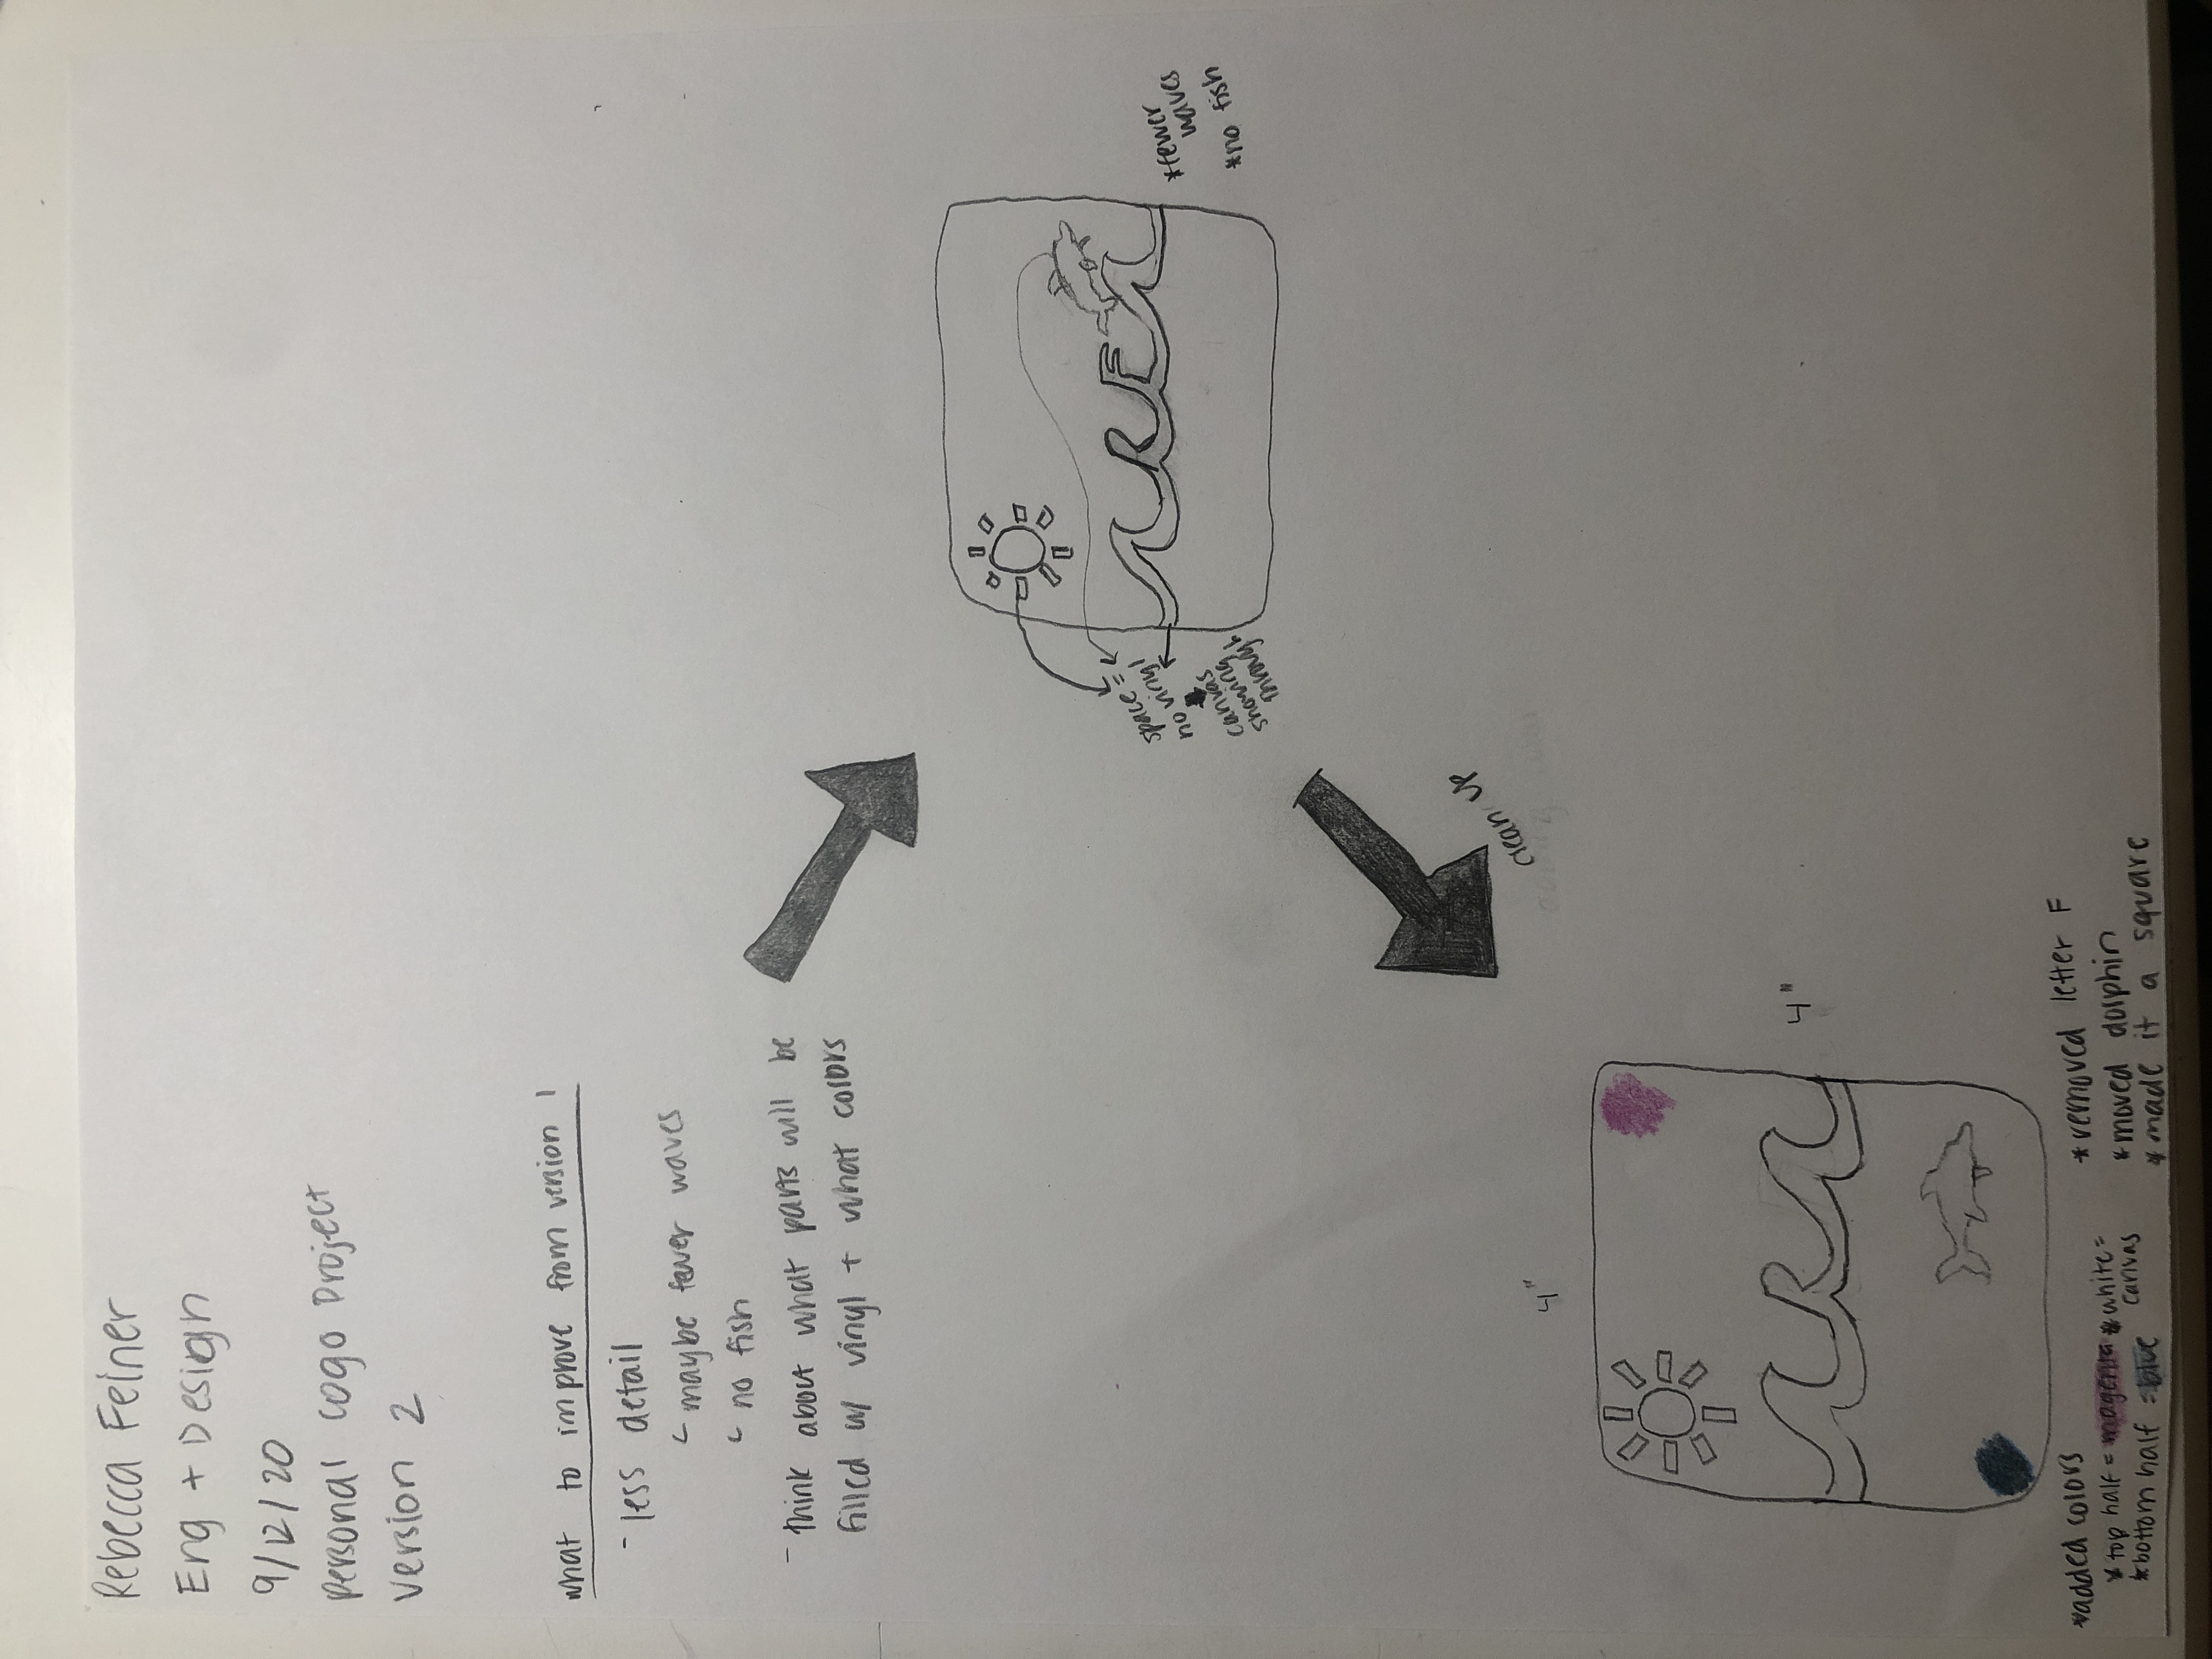 Rebecca Feiner
Eng + Design
9/12/20
Personal Logo Project
Version 2
what to improve from version 1
- less detail
maybe fewer waves
no fish
- think about what parts will be
filled w/ vinyl + what colors
space =
no vinyl
canvas
showing
through
R F
*fewer
waves
*no fish
clean up
4"
4"
R
*added colors
* top half = magenta
*bottom half = blue
*white =
canvas
*removed letter F
*moved dolphin
*made it a square